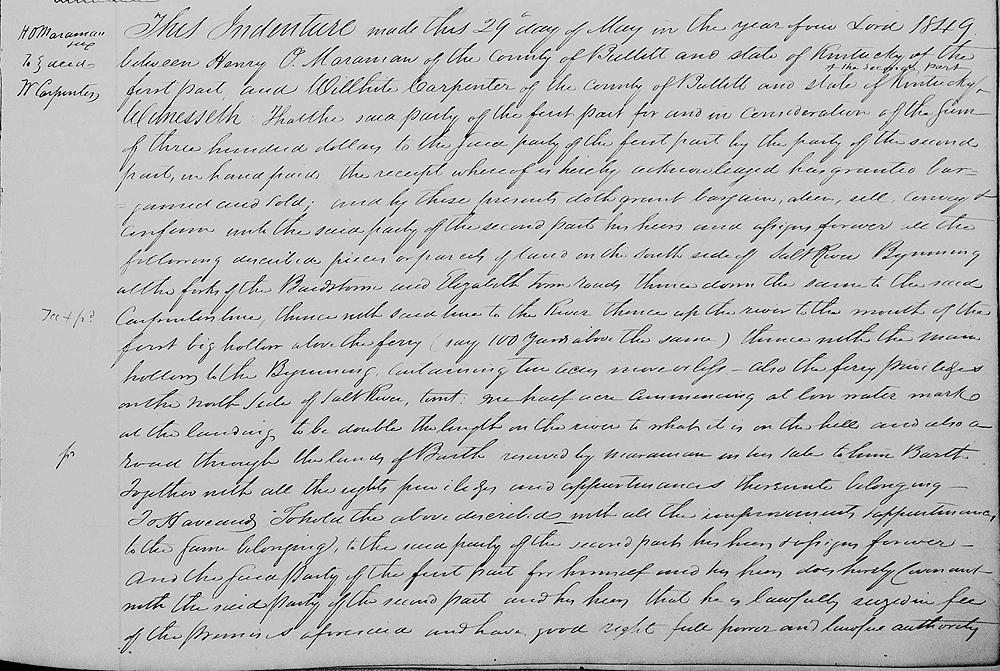 H O Maraman
To } deed
W Carpenter
This Indenture made this 29th day of May in the year from Lord 1849
between Henry O. Maraman of the County of Bullitt and state of Kentucky of the
of the second part
first part and Willhite Carpenter of the county of Bullitt and state of Kentucky
Witnesseth That the said party of the first part for and in consideration of the sum
of three hundred dollars to the said party of the first part by the party of the second
part, in hand paid the receipt whereof is hereby acknowledged has granted bar-
gained and sold; and by these presents doth grant bargain, alien, sell, convey &
confirm unto the said party of the second part his heirs and assigns forever all the
following described pieces or parcels of land on the south side of Salt River Beginning
at the forks of the Bardstown and Elizabeth town roads thence down the same to the said
Carpenters line, thence with said line to the River thence up the river to the mouth of the
first big hollow above the ferry (say 100 yards above the same) thence with the main
hollow to the Beginning, containing two acres more or less - also the ferry priviledges
on the North side of Salt River, (viz: one half acre commencing at low water mark
at the landing to be double the length on the river to what it is on the hill and also a
road through the lands of Barth reserved by Maraman in his sale to him Barth
Together with all the rights priviledges and appurtenances thereunto belonging -
To Have and To hold the above described with all the improvements & appurtenances
to the same belonging, to the said party of the second part his heirs & assigns forever -
And the said Party of the first part for himself and his heirs does hereby Covenant
with the said Party of the second part and his heirs that he is lawfully seized in fee
of the premises aforesaid and have good right full power and lawful authority